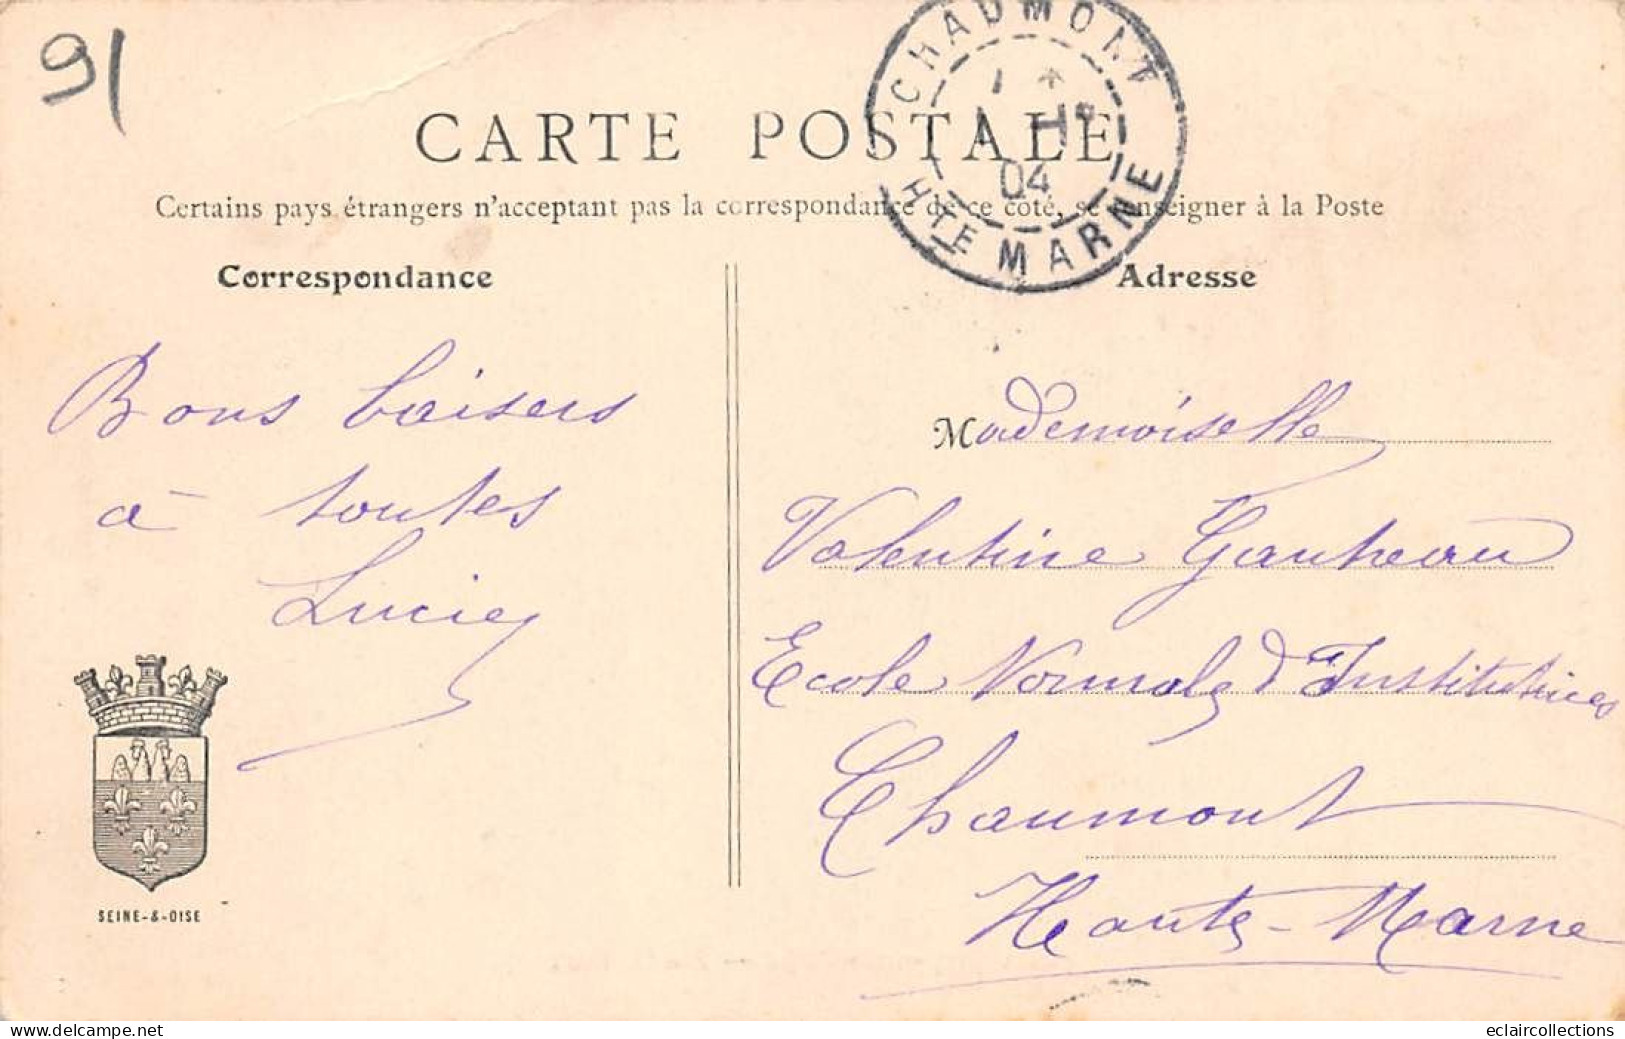 91
CHAUMONT
HTE MARNE
04
CARTE POSTALE
Certains pays étrangers n'acceptant pas la correspondance de ce côté, se renseigner à la Poste
Correspondance
Bons baisers
à toutes
Lucie
SEINE-&-OISE
Adresse
Mademoiselle
Valentine Gautheau
Ecole Normale d'Institutrices
Chaumont
Haute-Marne
delcampe.net
eclaircollections